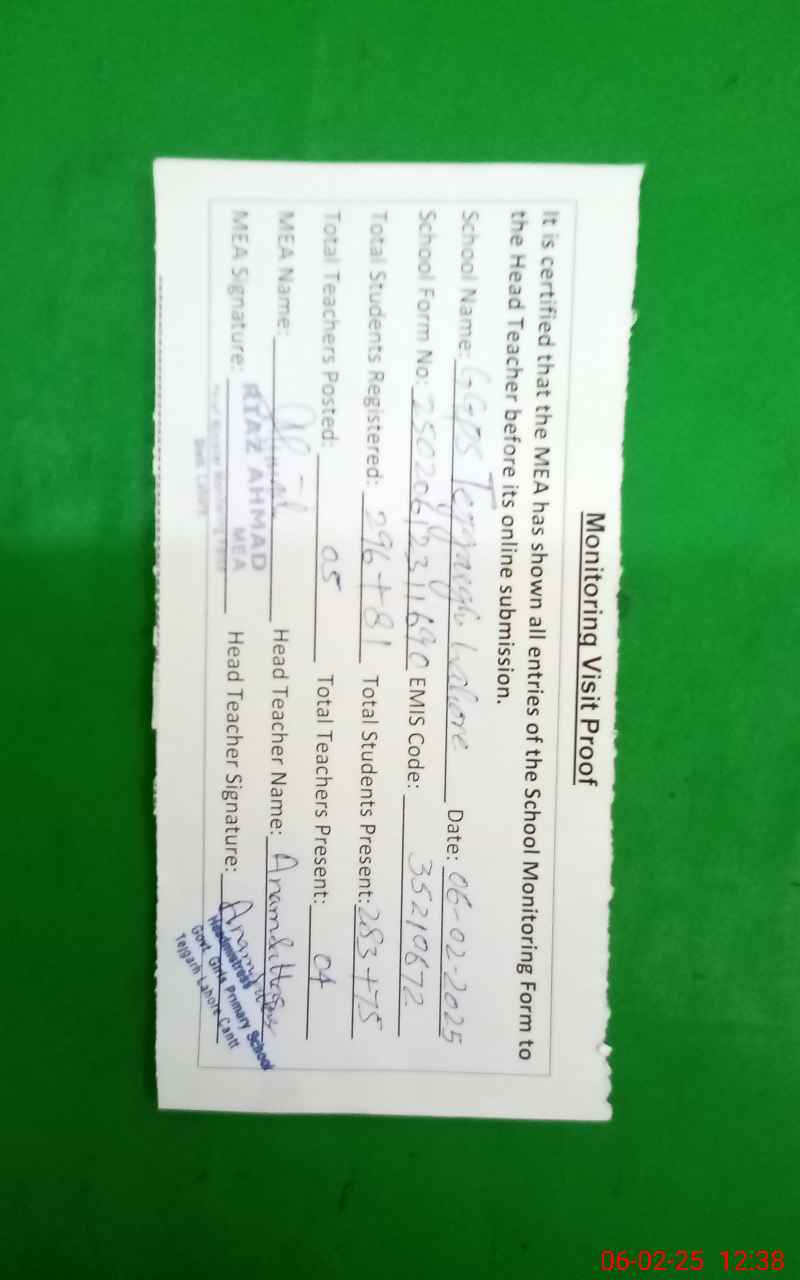 Monitoring Visit Proof
It is certified that the MEA has shown all entries of the School Monitoring Form to
the Head Teacher before its online submission.
School Name: GGPS Lahore Date: 06-02-2025
School Form No: EMIS Code: 35210672
Total Students Registered: 296+81 Total Students Present: 283+75
Total Teachers Posted: 05 Total Teachers Present: 04
MEA Name: Head Teacher Name: Anam
MEA Signature: Head Teacher Signature: Anam
RIAZ AHMAD
MEA
Headmistress
Govt. Girls Primary School
Telgarh Lahore Cantt
06-02-25 12:38